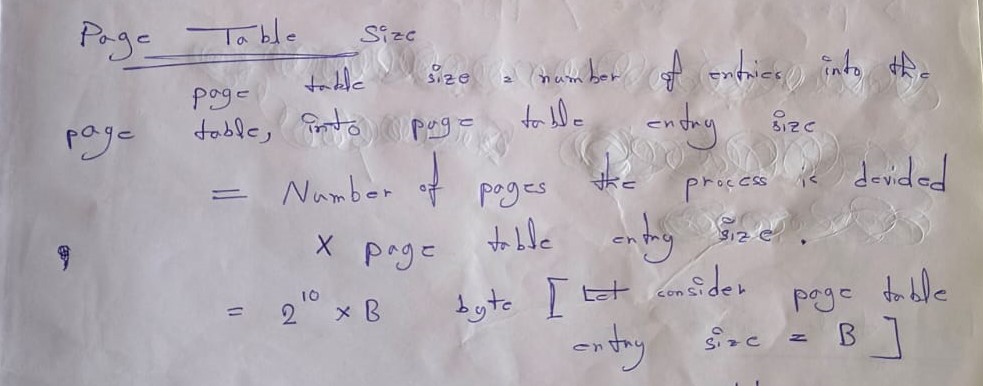 Page Table Size
page table size = number of entries into the
page table, into page table entry size
= Number of pages the process is devided
× page table entry size.
= 2^10 × B byte [ Let consider page table
entry size = B ]